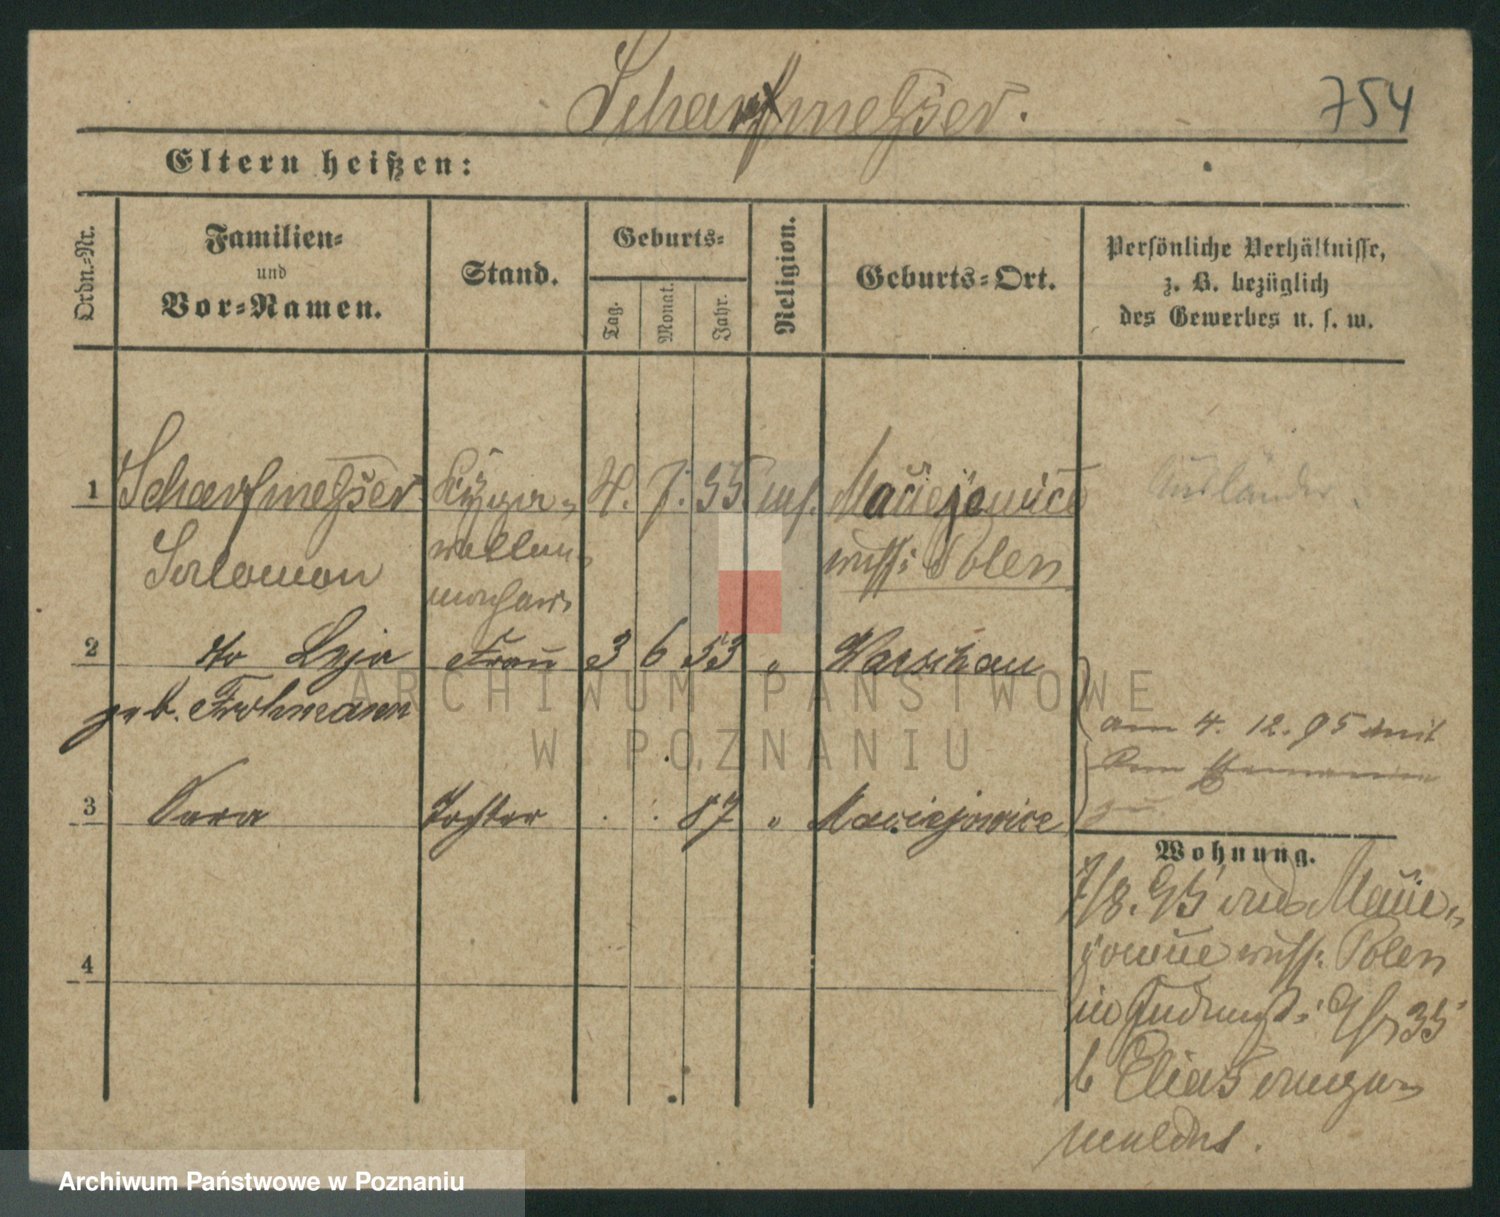 Scharfmesser.
754
Eltern heißen:
Ordn.-Nr.
Familien-
und
Vor-Namen.
Stand.
Geburts-
Tag.
Monat.
Jahr.
Religion.
Geburts-Ort.
Persönliche Verhältnisse,
z. B. bezüglich
des Gewerbes u. s. w.
1 Scharfmesser 4. 7. 55. mos. Maciejowice Ausländer.
Salomon russ: Polen
2 dto Lyja Frau 3 6 53 " Warschau
geb. Frohmann
am 4. 12. 95 mit
3 Sara Tochter 87 " Maciejowice
zu
Wohnung.
7/8. 95 aus Macie-
jowice russ: Polen
35
b Elias ange-
meldet.
4
ARCHIWUM PAŃSTWOWE
W POZNANIU
Archiwum Państwowe w Poznaniu